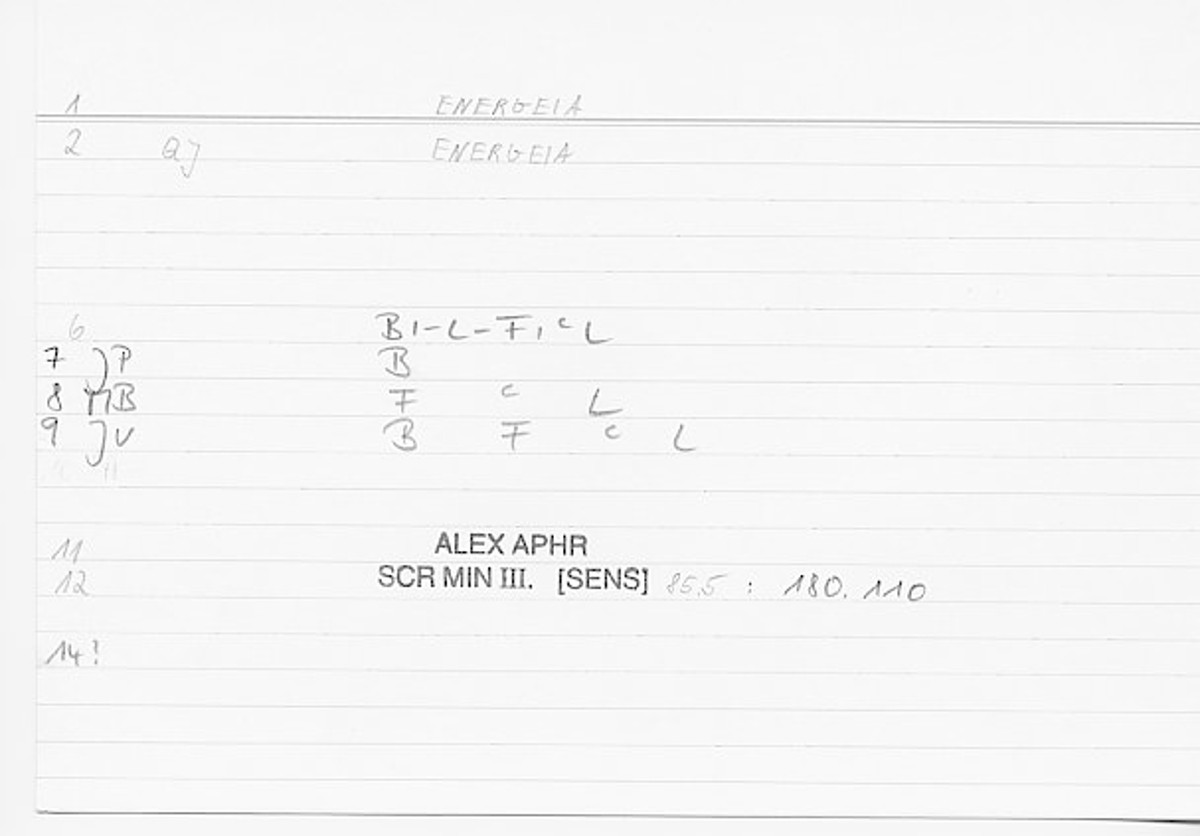 1 ENERGEIA
2 Qj ENERGEIA
6 B I-L-F, c L
7 P B
8 B F c L
9 V B F c L
11 ALEX APHR
12 SCR MIN III. [SENS] 85.5 : 180. 110
14?